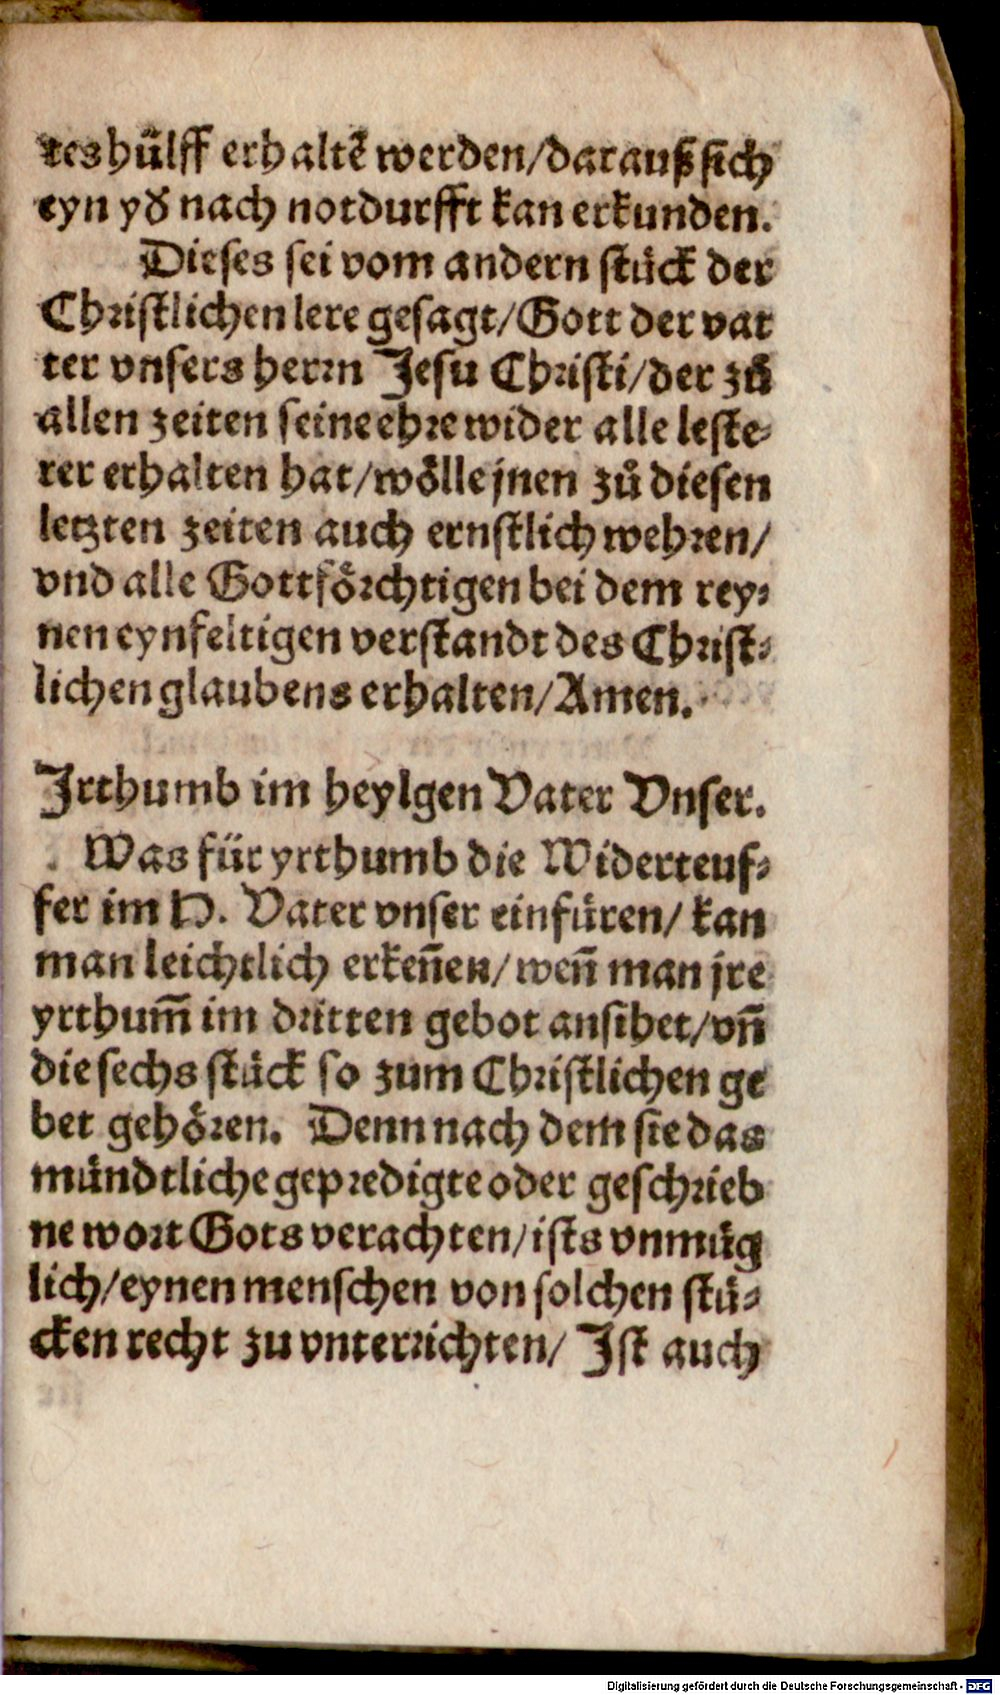 tes hülff erhaltē werden/darauß sich
eyn yð nach notdurfft kan erkunden.
Dieses sei vom andern stück der
Christlichen lere gesagt/Gott der vat
ter vnsers herrn Jesu Christi/der zů
allen zeiten seine ehre wider alle leste-
rer erhalten hat/wölle jnen zů diesen
letzten zeiten auch ernstlich wehren/
vnd alle Gottförchtigen bei dem rey-
nen eynfeltigen verstandt des Christ-
lichen glaubens erhalten/Amen.
Jrthumb im heylgen Vater Vnser.
Was für yrthumb die Widerteuf-
fer im H. Vater vnser einfüren/ kan
man leichtlich erkeñen/weñ man jre
yrthum̃ im dritten gebot ansihet/vñ
die sechs stück so zum Christlichen ge
bet gehören. Denn nach dem sie das
mündtliche gepredigte oder geschrieb
ne wort Gots verachten/ists vnmüg
lich/eynen menschen von solchen stü-
cken recht zu vnterrichten/ Jst auch
Digitalisierung gefördert durch die Deutsche Forschungsgemeinschaft - DFG